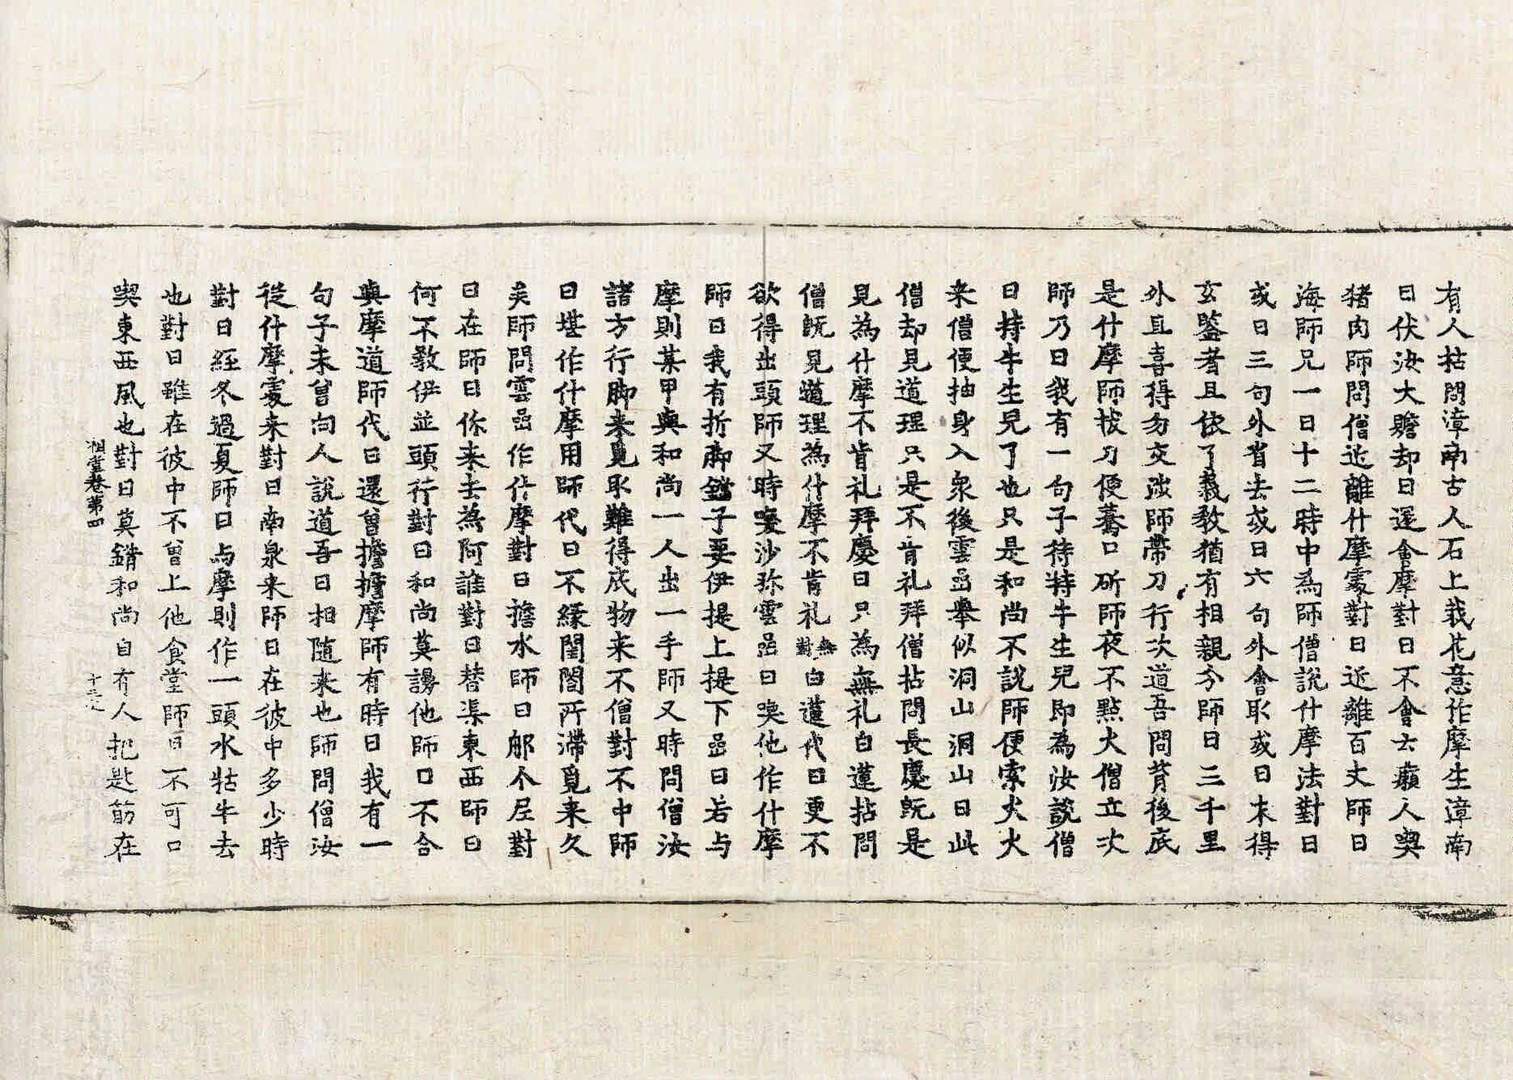 有人拈問漳南古人石上栽花意作摩生漳南
曰伏汝大贍却曰還會摩對曰不會云癩人喫
猪肉師問僧近離什摩䖏對曰近離百丈師曰
海師兄一日十二時中為師僧說什摩法對曰
或曰三句外省去或曰六句外會取或曰未得
玄鑒者且依了義教猶有相親分師曰三千里
外且喜得勿交涉師帶刀行次道吾問背後底
是什摩師拔刀便驀口斫師夜不點火僧立次
師乃曰我有一句子待特牛生兒即為汝說僧
曰特牛生兒了也只是和尚不說師便索火火
来僧便抽身入衆後雲嵒舉似洞山洞山曰此
僧却見道理只是不肯礼拜僧拈問長慶既是
見為什摩不肯礼拜慶曰只為無礼白蓮拈問
僧既見道理為什摩不肯礼無對白蓮代曰更不
欲得出頭師又時喚沙弥雲嵒曰喚他作什摩
師曰我有折脚鐺子要伊提上提下嵒曰若与
摩則某甲與和尚一人出一手師又時問僧汝
諸方行脚来覓取難得底物来不僧對不中師
曰堪作什摩用師代曰不緣閨閤所滯覓来久
矣師問雲嵒作什摩對曰擔水師曰那个尼對
曰在師曰你来去為阿誰對曰替渠東西師曰
何不教伊並頭行對曰和尚莫謗他師曰不合
與摩道師代曰還曾擔擔摩師有時曰我有一
句子未曾向人說道吾曰相随来也師問僧汝
從什摩䖏来對曰南泉来師曰在彼中多少時
對曰經冬過夏師曰与摩則作一頭水牯牛去
也對曰雖在彼中不曾上他食堂師曰不可口
喫東西風也對曰莫錯和尚自有人把匙筯在
祖堂卷第四